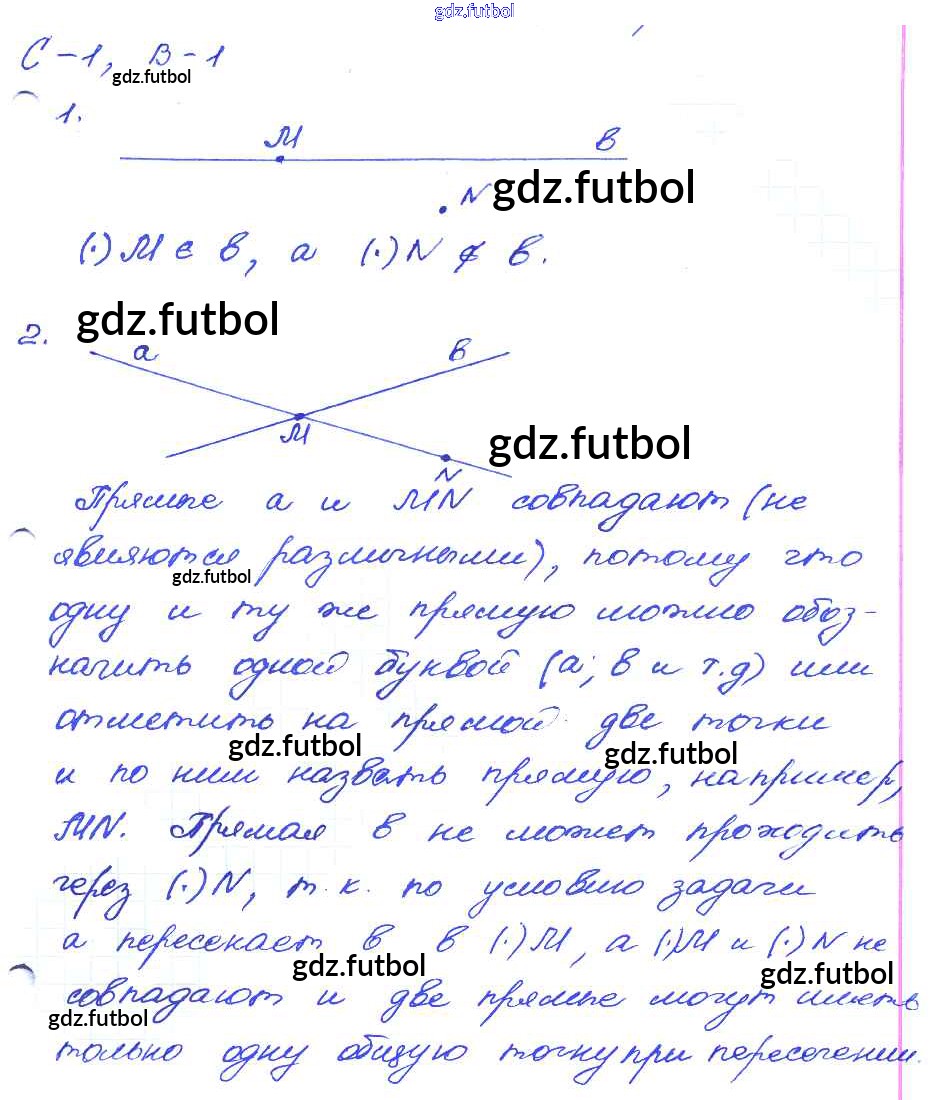 gdz.futbol
С-1, В-1
gdz.futbol
1.
М в
N gdz.futbol
(·) М ∈ в, а (·) N ∉ в.
2. gdz.futbol
а в
М gdz.futbol
N
Прямые а и MN совпадают (не
являются различными), потому что
gdz.futbol
одну и ту же прямую можно обоз-
начить одной буквой (а; в и т.д) или
отметить на прямой две точки
gdz.futbol gdz.futbol
и по ним назвать прямую, например,
MN. Прямая в не может проходить
через (·) N, т.к. по условию задачи
а пересекает в в (·) М, а (·) М и (·) N не
gdz.futbol gdz.futbol
совпадают и две прямые могут иметь
gdz.futbol
только одну общую точку при пересечении.